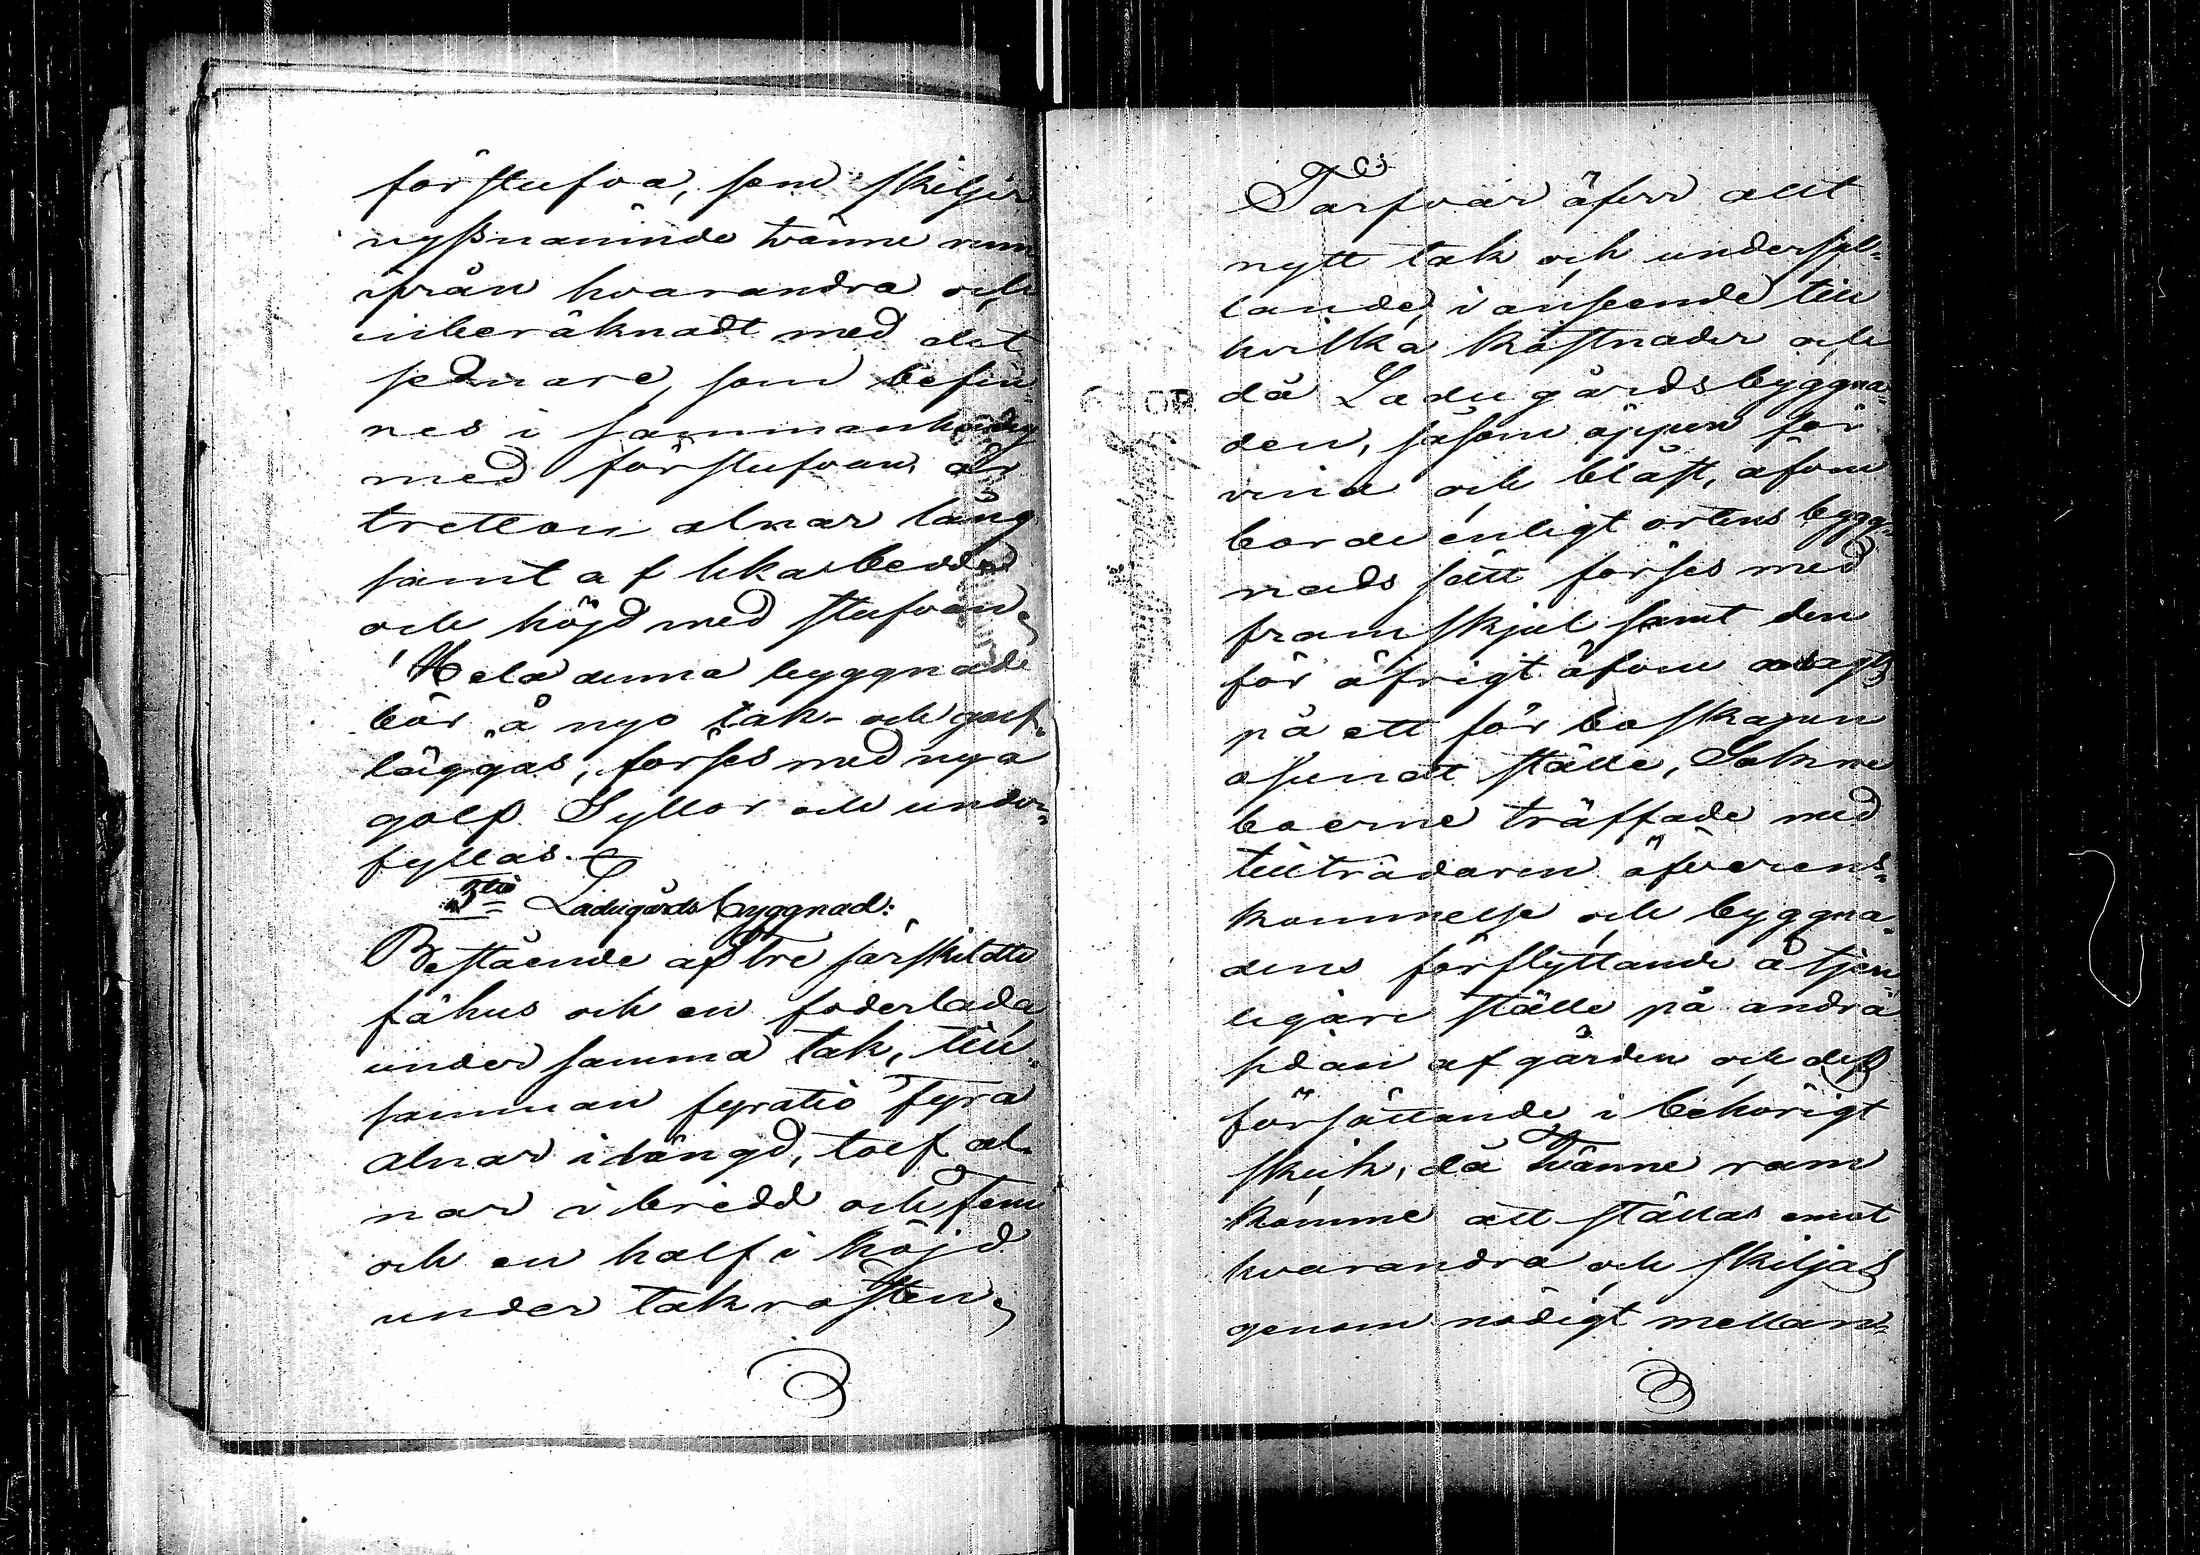 förstufva, som skiljer
nyßnämnde tvänne rum
ifrån hvarandra och
inberäknadt med det
sednare, som befin-
nes i sammanhang
med förstufvan, är
tretton alnar lång
samt af lika bredd
och höjd med stufvan.
Hela denna byggnad
bör å nyo tak- och golf-
läggas, förses med nya
golf Syllor och under-
fyllas.
3tio Ladugårds byggnad:
Bestående af tre särskildte
fähus och en foderlada
under samma tak, till-
samman fyratio fyra
alnar i längd, tolf al-
nar i bredd och fem
och en half i höjd
under takrösten,
Tarfvar äfven allt
nytt tak och underfyl-
lande, i anseende till
hvilka kostnader och
då Ladugårdsbyggna-
den, såsom öppen för
vind och blåst, äfven
borde enligt ortens bygg-
nads sätt förses med
framskjul samt den
för öfrigt äfven anlagts
på ett för boskapen
osundt ställe,
boerne träffade med
tillträdaren öfverens-
kommelse och byggna-
dens förflyttande å tjen-
ligare ställe på andra
sidan af gården och deß
försättande i behörigt
skick, då tvänne rum
komme att ställas emot
hvarandra och skiljas
genom nödigt mellan-